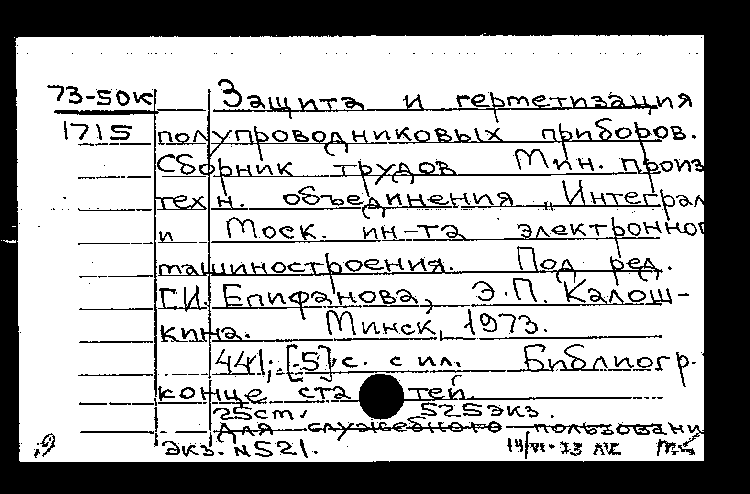 73-50к Защита и герметизация
1715 полупроводниковых приборов.
Сборник трудов Мин. произ
техн. объединения „Интеграл
и Моск. ин-та электронног
машиностроения. Под ред.
Г.И. Епифанова, Э.П. Калош-
кина. Минск, 1973.
441; [5] с. с ил. Библиогр.
конце статей.
25см. 525экз.
Для служебного пользовани
экз. N521.